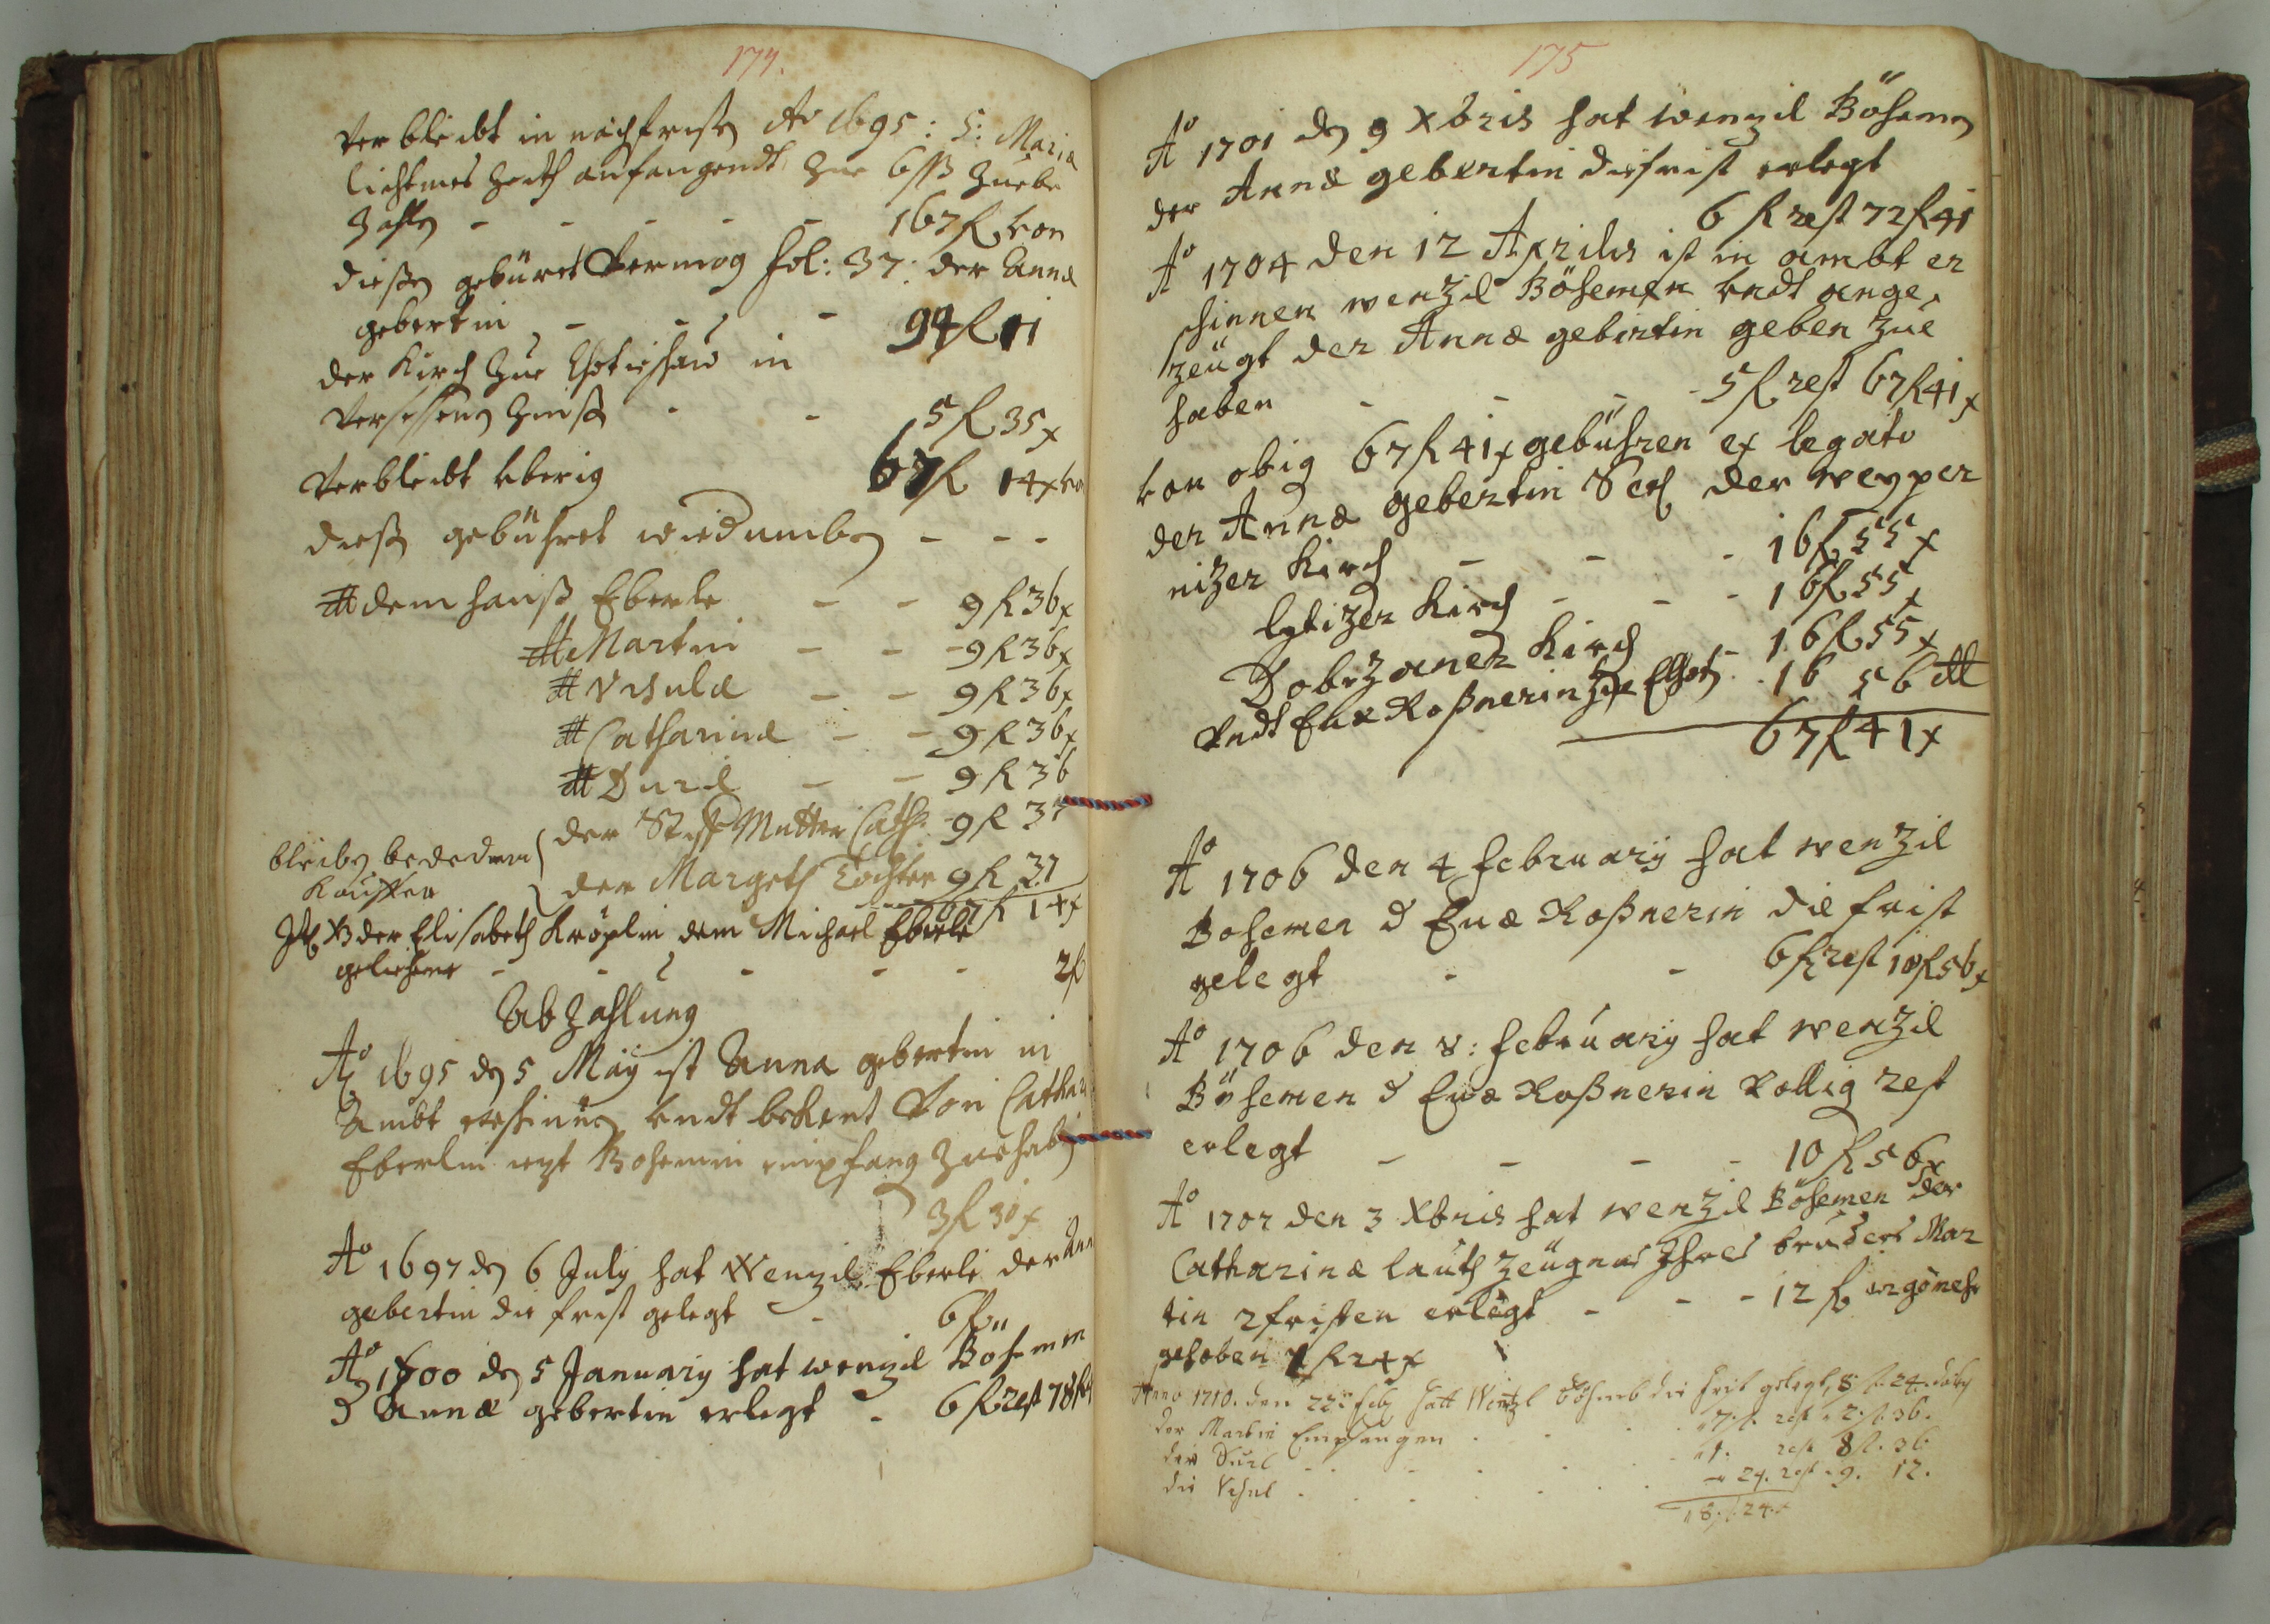 174.
Verbleibt in nachfristen Ao 1695: S: Maria
lichtmes Zeith anfangendt zue 6 ß zuebe
zahlen - - - - - 167 fl von
dießen gebüret Vermog fol: 37: der Anna
gebertin - - - 94 fl 11
der Kirch zue in
Versessenen Zinß - - 5 fl 35 x
Verbleibt vberig 67 fl 14 x von
dießen gebühret widumben - - -
dem Hanß Eberle - - 9 fl 36 x
Martini - - - 9 fl 36 x
Vrsulæ - - 9 fl 36 x
Catharinæ - - 9 fl 36 x
Duræ - - 9 fl 36
der Stiff Mutter Cath: 9 fl 37
bleiben bededem
Kauffer
der Margeth Tochter 9 fl 37
67 fl 14 x
der Elisabeth Kröplin dem Michael Eberle
geliehene - - - - - 2 fl
Abzahlung
Ao 1695 den 5 May ist Anna gebertin in
Ambt erschinen vndt bekent von Cathar
Eberlin iezt Bohemin empfang zue haben
3 fl 30 x
Ao 1697 den 6 July hat Wenzil Eberle der Ann
gebertin die frist gelegt - 6 fl
Ao 1700 den 5 January hat wenzil Böhemen
d Annæ gebertin erlegt - 6 fl rest 78 fl
175
Ao 1701 den 9 Xbris hat wenzil Böhemen
der Annæ gebertin die frist erlegt
6 fl rest 72 fl 41
Ao 1704 den 12 Aprilis ist in ambt er
schinnen wenzil Böhemen vndt ange
zeügt der Annæ gebertin geben zue
haben - - - 5 fl rest 67 fl 41 x
von obig 67 fl 41 x gebühren ex legato
der Annæ gebertin Seel der weyper
nizer Kirch - - - 16 fl 55 x
lytizer Kirch - - - 16 fl 55 x
Dobrzaner Kirch - 16 fl 55 x
Vndt Euæ Roßnerin zue - 16 56
67 fl 41 x
Ao 1706 den 4 february hat wenzil
Bohemen d Euæ Roßnerin die frist
gelegt - - 6 fl rest 10 fl 56 x
Ao 1706 den 8: february hat wenzil
Böhemen d Euæ Roßnerin Vollig rest
erlegt - - - - 10 fl 56 x
Ao 1707 den 3 Xbris hat wenzil Böhemen der
Catharinæ lauth zeügnus Ihres bruders Mar
tin 2 fristen erlegt - - - 12 fl
gehoben fl 24 x
Anno 1710. den 22 feb: hatt Wentzl Böhmb die frist gelegt, 8 fl. 24.
Der Martin Empfangen . . . 7. fl. rest 2. fl. 36.
die Durl - . . . . 1. rest 8 fl. 36
die Vrsul . . . . . 24. rest 9. 12.
8. fl. 24. x